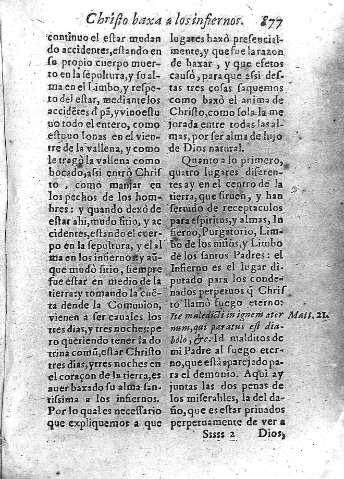 Christo baxa a los infiernos. 877
continuo el estar mudan
do accidentes, estando en
su propio cuerpo muer-
to en la sepultura, y su al-
ma en el Limbo, y respe-
to del estar, mediante los
accidẽtes d̃ pã, y vino estu
uo todo el entero, como
estuuo Ionas en el vien-
tre de la vallena, y como
le tragò la vallena como
bocado, assi entrò Chris
to, como manjar en
los pechos de los hom-
bres: y quando dexò de
estar ahi, mudò sitio, y ac
cidentes, estando el cuer-
po en la sepultura, y el al
ma en los infiernos: y aũ-
que mudò sitio, siempre
fue estar en medio de la
tierra: y tomando la cuẽ-
ta dende la Comunion,
vienen a ser cauales los
tres dias, y tres noches: pe
ro queriendo tener la do
trina comũ, estar Christo
tres dias, y tres noches en
el coraçon de la tierra, es
auer baxado su alma san-
tissima a los infiernos.
Por lo qual es necessario
que expliquemos a que
lugares baxò presencial-
mente, y que fue la razon
de baxar, y que efetos
causò, para que assi des-
tas tres cosas saquemos
como baxò el anima de
Christo, como sola la me
jorada entre todas las al-
mas, por ser alma de hijo
de Dios natural.
Quanto a lo primero,
quatro lugares diferen-
tes ay en el centro de la
tierra, que siruen, y han
seruido de receptaculos
para espiritus, y almas, In
fierno, Purgatorio, Lim-
bo de los niños, y Limbo
de los santos Padres: el
Infierno es el lugar di-
putado para los conde-
nados perpetuos q̃ Chris
to llamò fuego eterno:
Ite maledicti in ignem æter Matt. 21.
num, qui paratus est dia-
bolo, &c. Id malditos de
mi Padre al fuego eter-
no, que està aparejado pa-
ra el demonio. Aqui ay
juntas las dos penas de
los miserables, la del da-
ño, que es estar priuados
perpetuamente de ver a
Sssss 2 Dios,